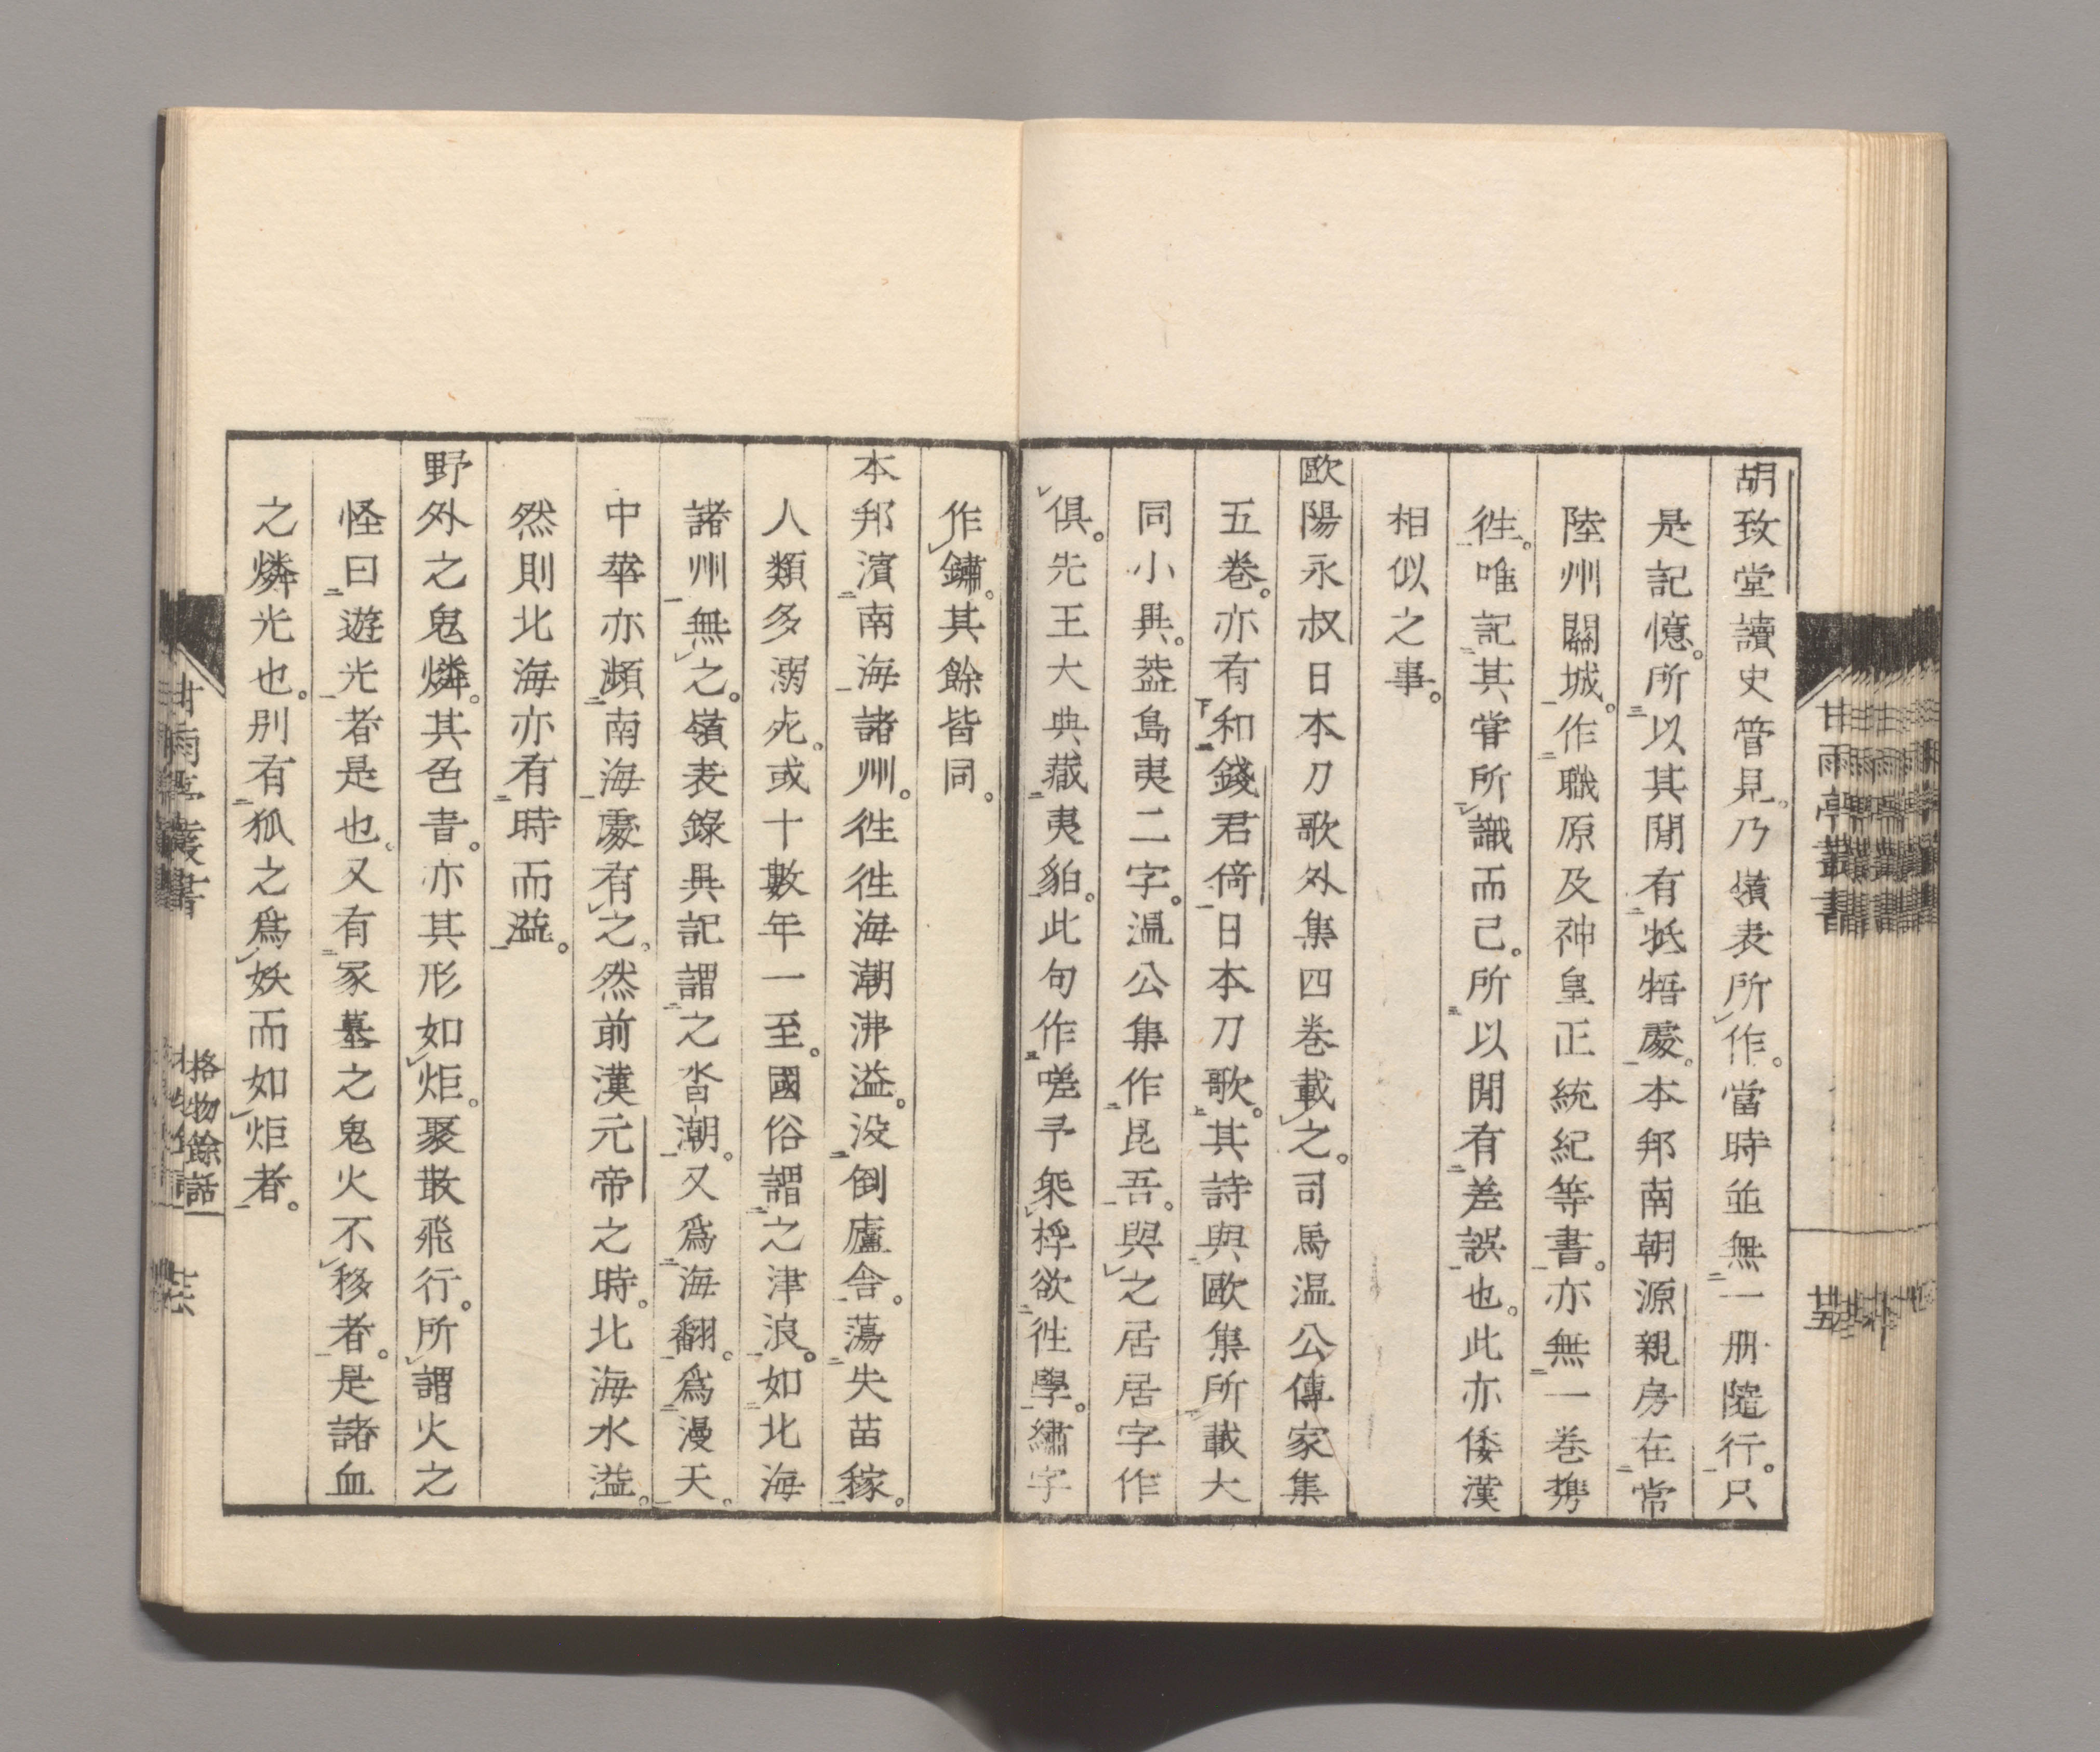 胡致堂讀史管見。乃嶺表所作。當時並無一册隨行。只
是記憶。所以其閒有牴牾處。本邦南朝源親房在常
陸州關城。作職原及神皇正統紀等書。亦無一卷携
徃。唯記其甞所識而已。所以閒有差誤也。此亦倭漢
相似之事。
歐陽永叔日本刀歌外集四卷載之。司馬温公傳家集
五卷。亦有和錢君倚日本刀歌。其詩與歐集所載大
同小異。葢島夷二字。温公集作昆吾。與之居居字作
俱。先王大典藏夷貊。此句作嗟予乘桴欲徃學。繡字
作鏽。其餘皆同。
本邦濱南海諸州。徃徃海潮沸溢。没倒廬舎。蕩失苗稼。
人類多溺死。或十數年一至。國俗謂之津浪。如北海
諸州無之。嶺表錄異記謂之沓潮。又爲海翻。爲漫天。
中華亦頻南海處有之。然前漢元帝之時。北海水溢。
然則北海亦有時而溢。
野外之鬼燐。其色青。亦其形如炬。聚散飛行。所謂火之
怪曰遊光者是也。又有冢墓之鬼火不移者。是諸血
之燐光也。别有狐之爲妖而如炬者。
甘雨亭叢書
廿五
格物餘話